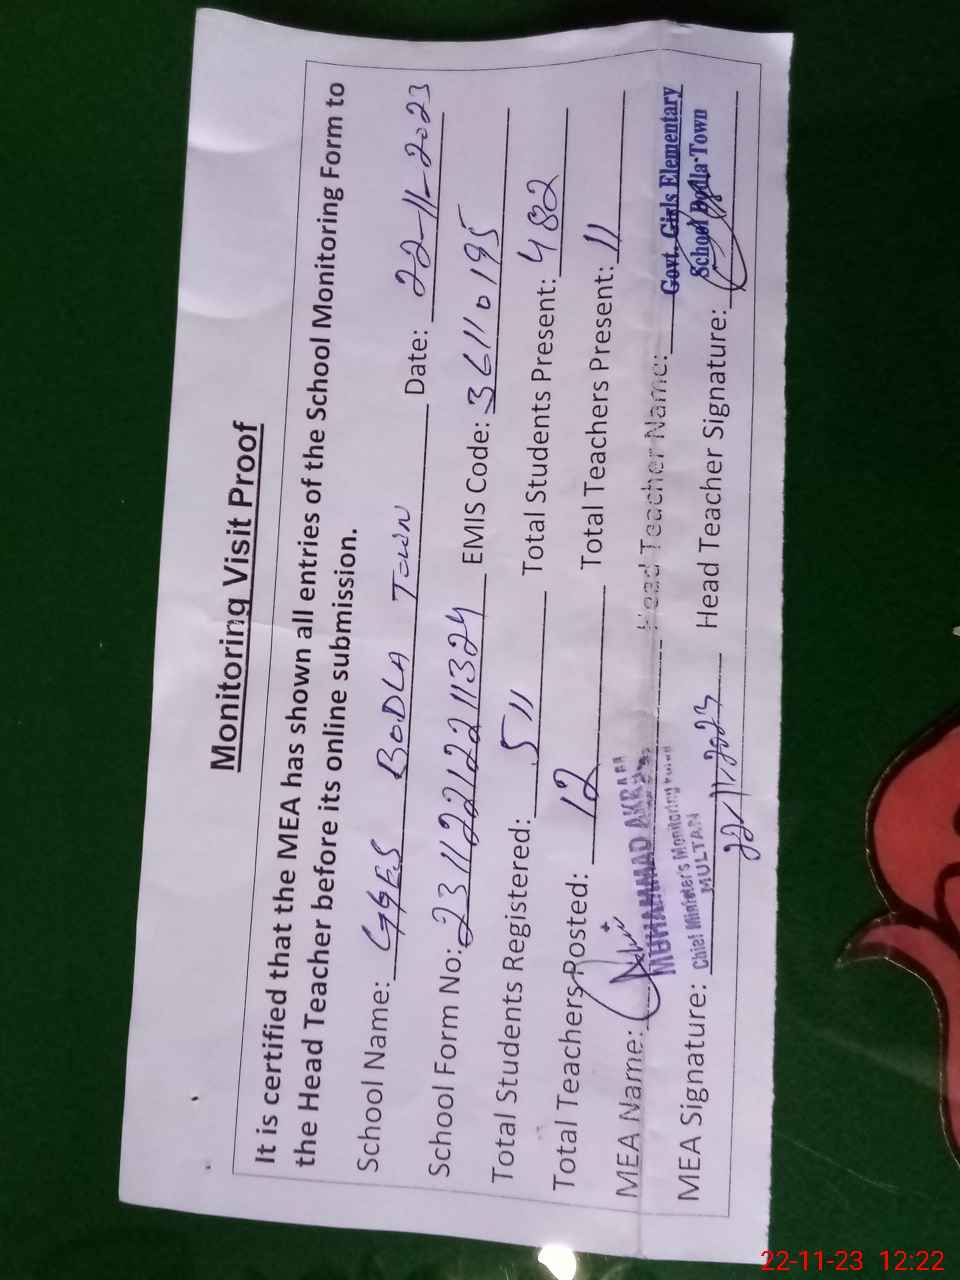 Monitoring Visit Proof
It is certified that the MEA has shown all entries of the School Monitoring Form to
the Head Teacher before its online submission.
School Name: GGES BODLA Town Date: 22-11-2023
School Form No: 231122122211324 EMIS Code: 36110195
Total Students Registered: 511 Total Students Present: 482
Total Teachers Posted: 12 Total Teachers Present: 11
MEA Name: MUHAMMAD Head Teacher Name: Govt. Girls Elementary
Chief Minister's Monitoring School Bodla Town
MULTAN
MEA Signature: Head Teacher Signature:
22-11-2023
22-11-23 12:22